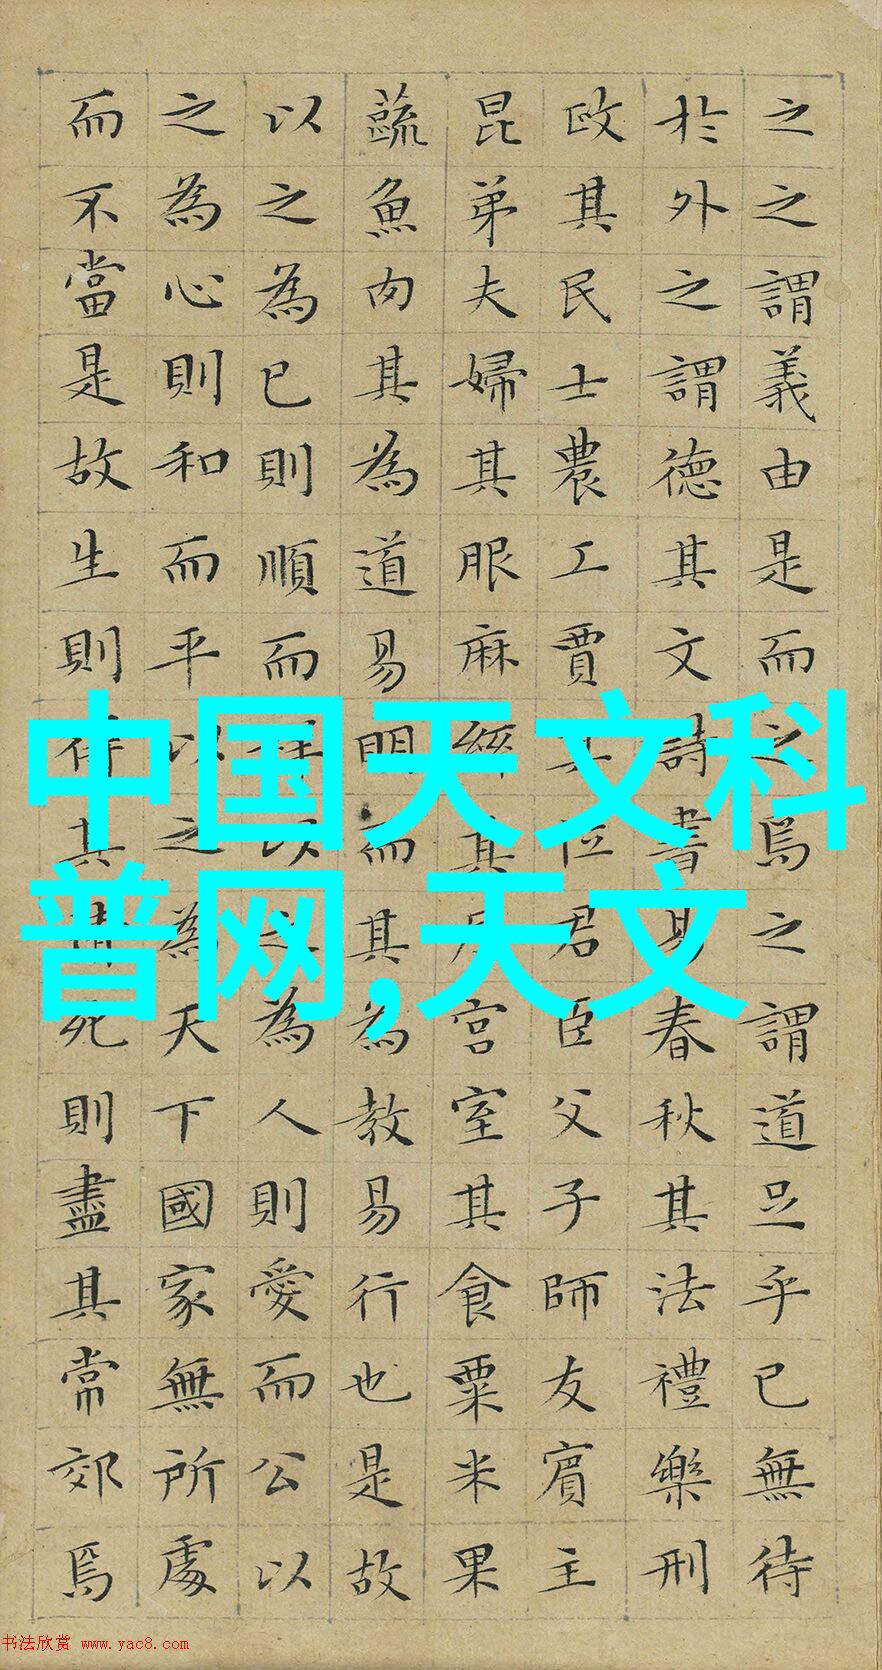 之之謂義由是而之焉之謂道足乎已無待
於外之謂德其文詩書易春秋其法禮樂刑
政其民士農工賈其位君臣父子師友賓主
昆弟夫婦其服麻絲其居宮室其食粟米果
蔬魚肉其為道易明而其為教易行也是故
以之為已則順而祥以之為人則愛而公以
之為心則和而平以之為天下國家無所處
而不當是故生則得其情死則盡其常郊焉
中国天文科
普网,天文
书法欣赏 www.yac8.com